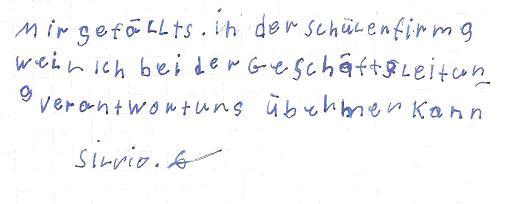 Mir gefällts. in der schülenfirma
weil ich bei der Geschäftsleitun
g verantwortung übehmen kann
Silvio. G